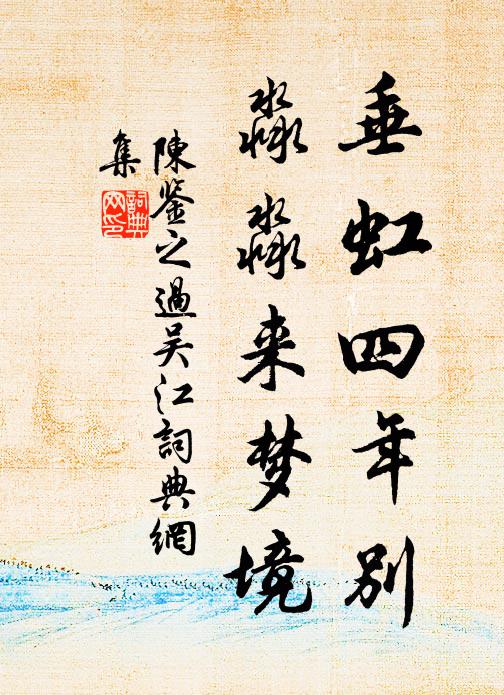 垂虹四年别
淼淼来梦境
陳鉴之過吴江詞典網
集
詞典
网印